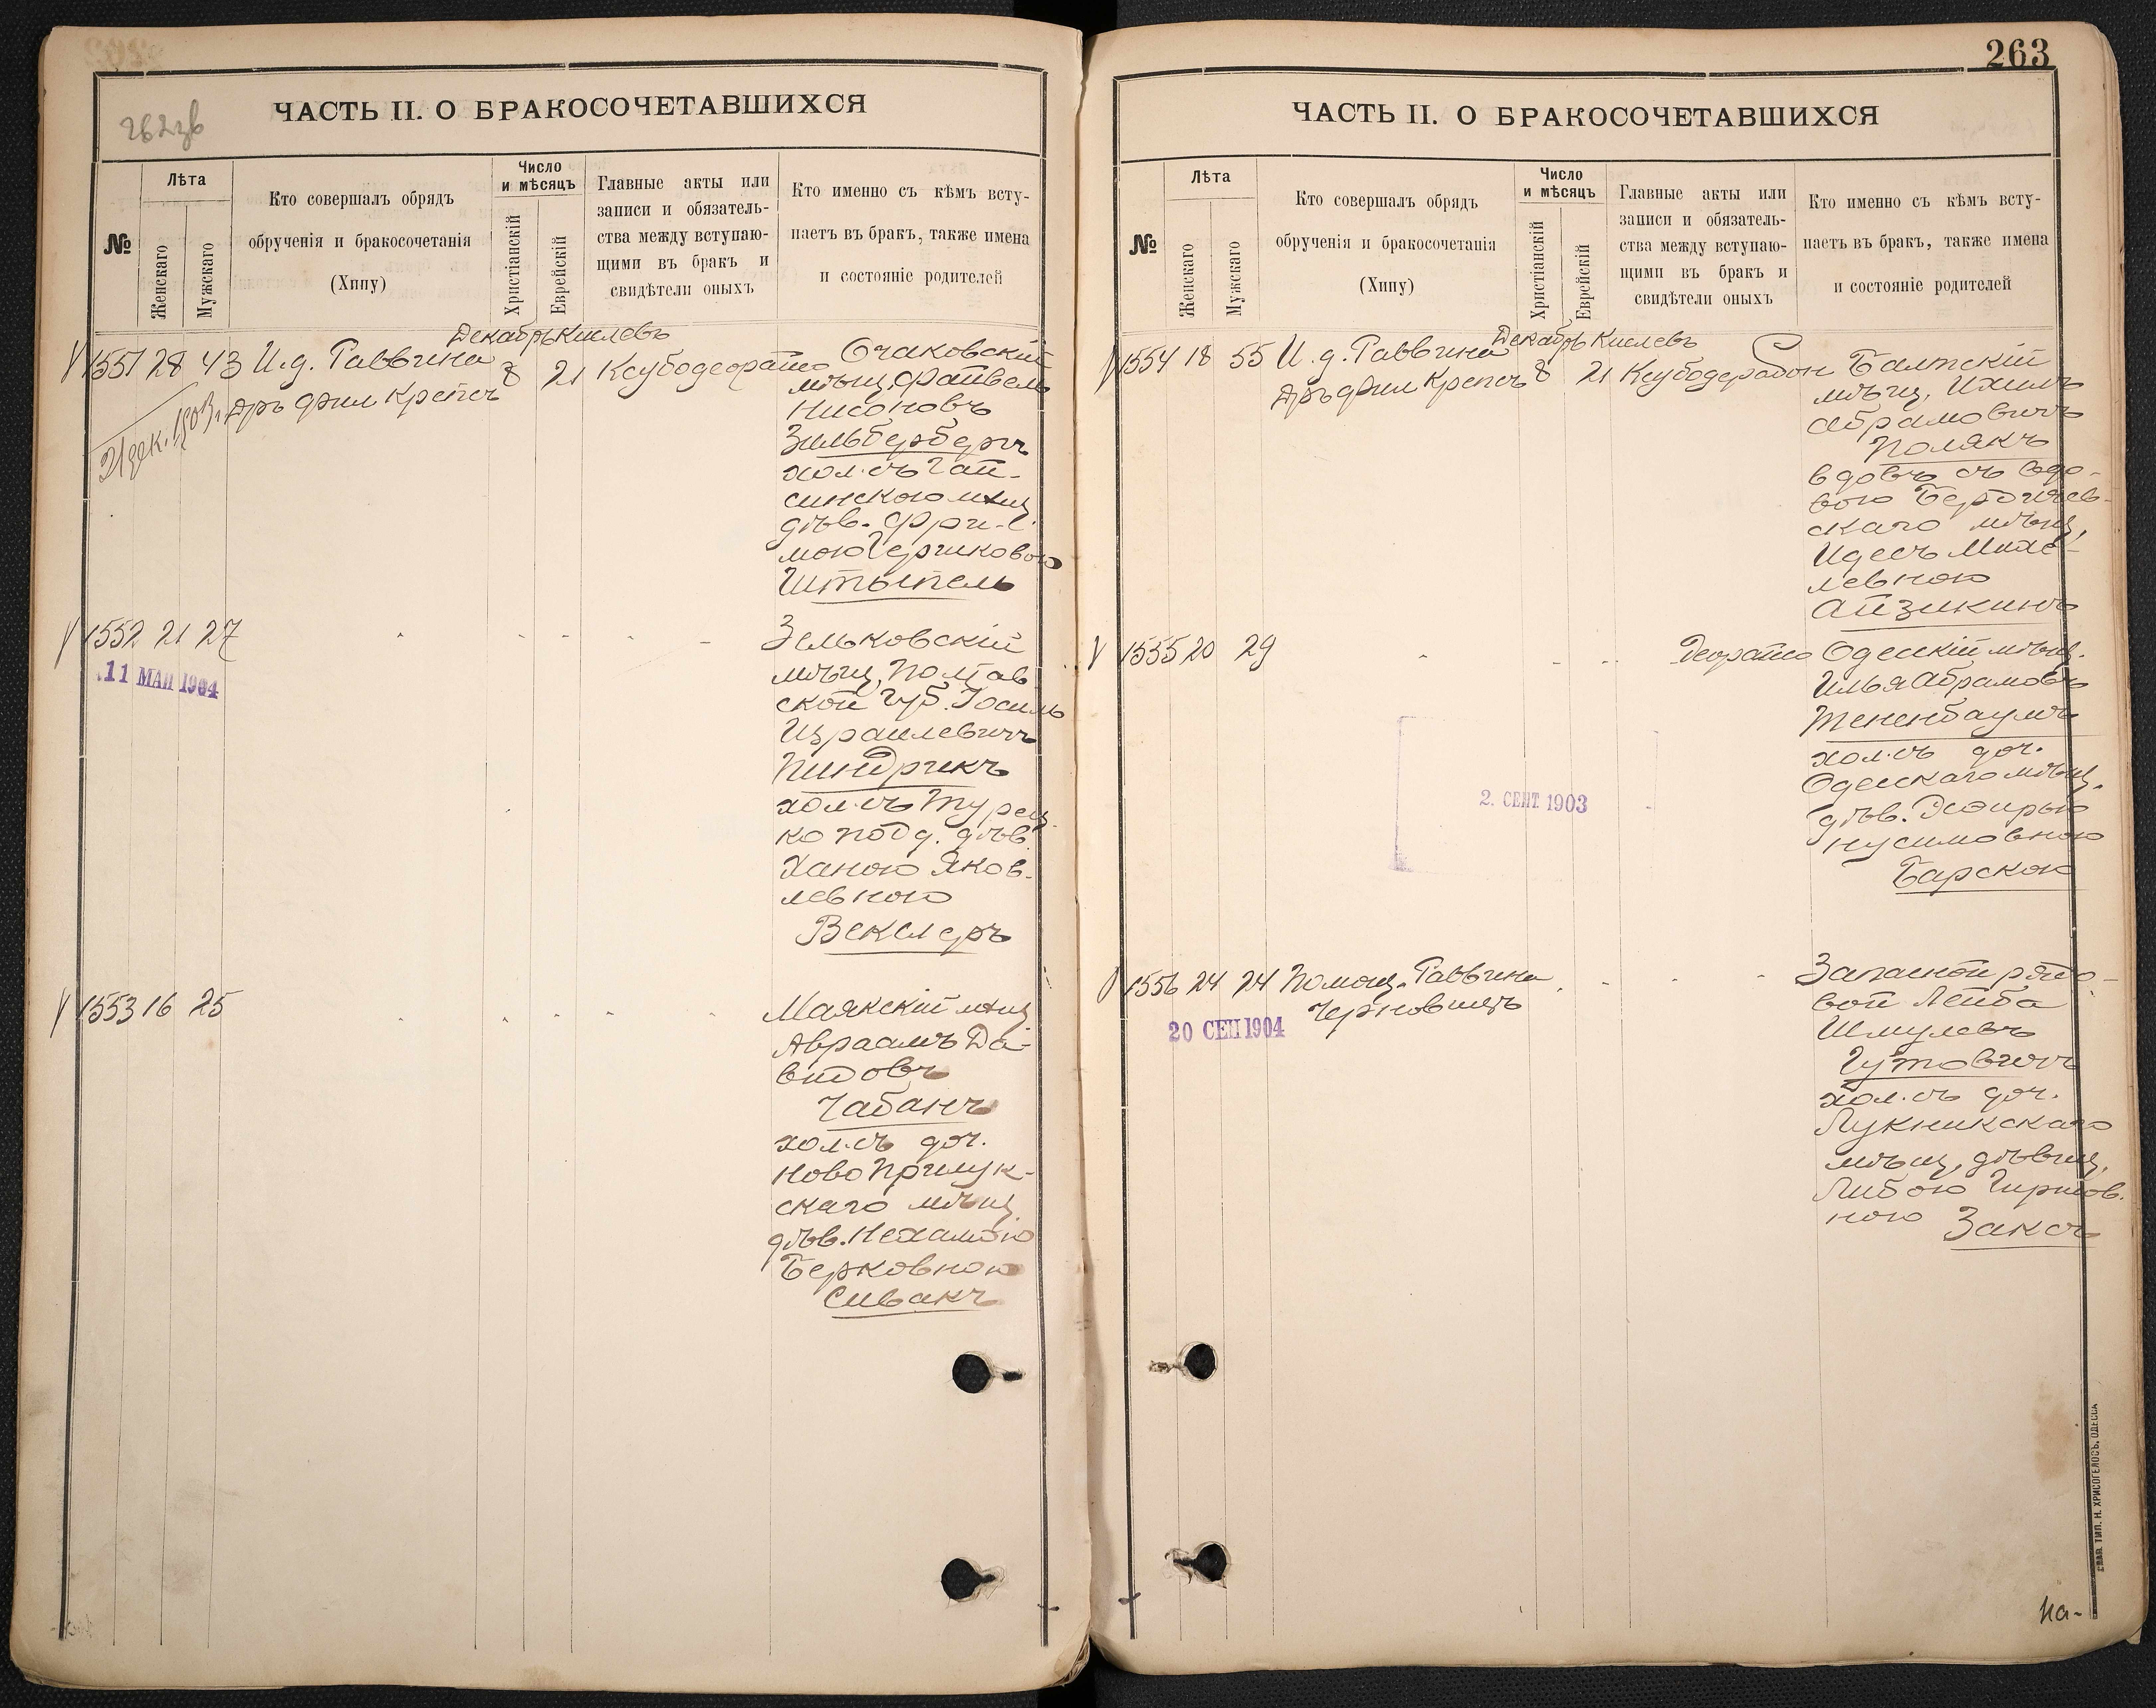 262зв
ЧАСТЬ II. О БРАКОСОЧЕТАВШИХСЯ
№
Лѣта
Женскаго
Мужскаго
Кто совершалъ обрядъ
обрученія и бракосочетанія
(Хипу)
Число
и мѣсяцъ
Христіанскій
Еврейскій
Главные акты или
записи и обязатель-
ства между вступаю-
щими въ бракъ и
свидѣтели оныхъ
Кто именно съ кѣмъ всту-
паетъ въ бракъ, также имена
и состояніе родителей
Декабрь Кислевъ
1551 28 43 И.д. Раввина
Дръ Фил Крепсъ
8 21 Ксубодеорайсо
21 дек. 1903 г.
Очаковскій
мѣщ. Файвель
Нисоновъ
Зильбербергъ
хол. съ Гай-
синскою мѣщ
дѣв. Фри-
мою Гершковою
Штытель
1552 21 27
11 МАЙ 1904
Зельковскій
мѣщ. Полтав
ской губ. Іосиль
Израилевичъ
Пиндрикъ
хол. съ Турец-
ко подд. дѣв.
Ханою Яков-
левною
Векслеръ
1553 16 25
Маякскій мѣщ
Авраамъ Да-
видовъ
Чабанъ
хол. съ доч.
Ново Прилук-
скаго мѣщ.
дѣв. Нехамою
Берковною
Сивакъ
263
ЧАСТЬ II. О БРАКОСОЧЕТАВШИХСЯ
№
Лѣта
Женскаго
Мужскаго
Кто совершалъ обрядъ
обрученія и бракосочетанія
(Хипу)
Число
и мѣсяцъ
Христіанскій
Еврейскій
Главные акты или
записи и обязатель-
ства между вступаю-
щими въ бракъ и
свидѣтели оныхъ
Кто именно съ кѣмъ всту-
паетъ въ бракъ, также имена
и состояніе родителей
Декабрь Кислевъ
1554 18 55 И.д. Раввина
Дръ Фил Крепсъ
8 21 Ксубодерабон
Балтскій
мѣщ. Ихилъ
Абрамовичъ
Полякъ
вдовъ съ вдо-
вою Бердичев-
скаго мѣщ.
Идесъ Михе-
левною
Айзикинъ
1555 20 29
Деорайсо
2. СЕНТ 1903
Одесскій мѣщ.
Илья Абрамовъ
Тененбаумъ
хол. съ доч.
Одесскаго мѣщ.
дѣв. Эсфирью
Нусимовною
Барскою
1556 24 24 Помощ. Раввина
Черновицъ
20 СЕН 1904
Запасной рядо-
вой Лейба
Шмулевъ
Гутовичъ
хол. съ доч.
Лукникскаго
мѣщ. дѣвиц.
Либою Гиршов-
ною Заксъ
ГЛАВ. ТИП. Н. ХРИСОГЕЛОСЪ. ОДЕССА
На-